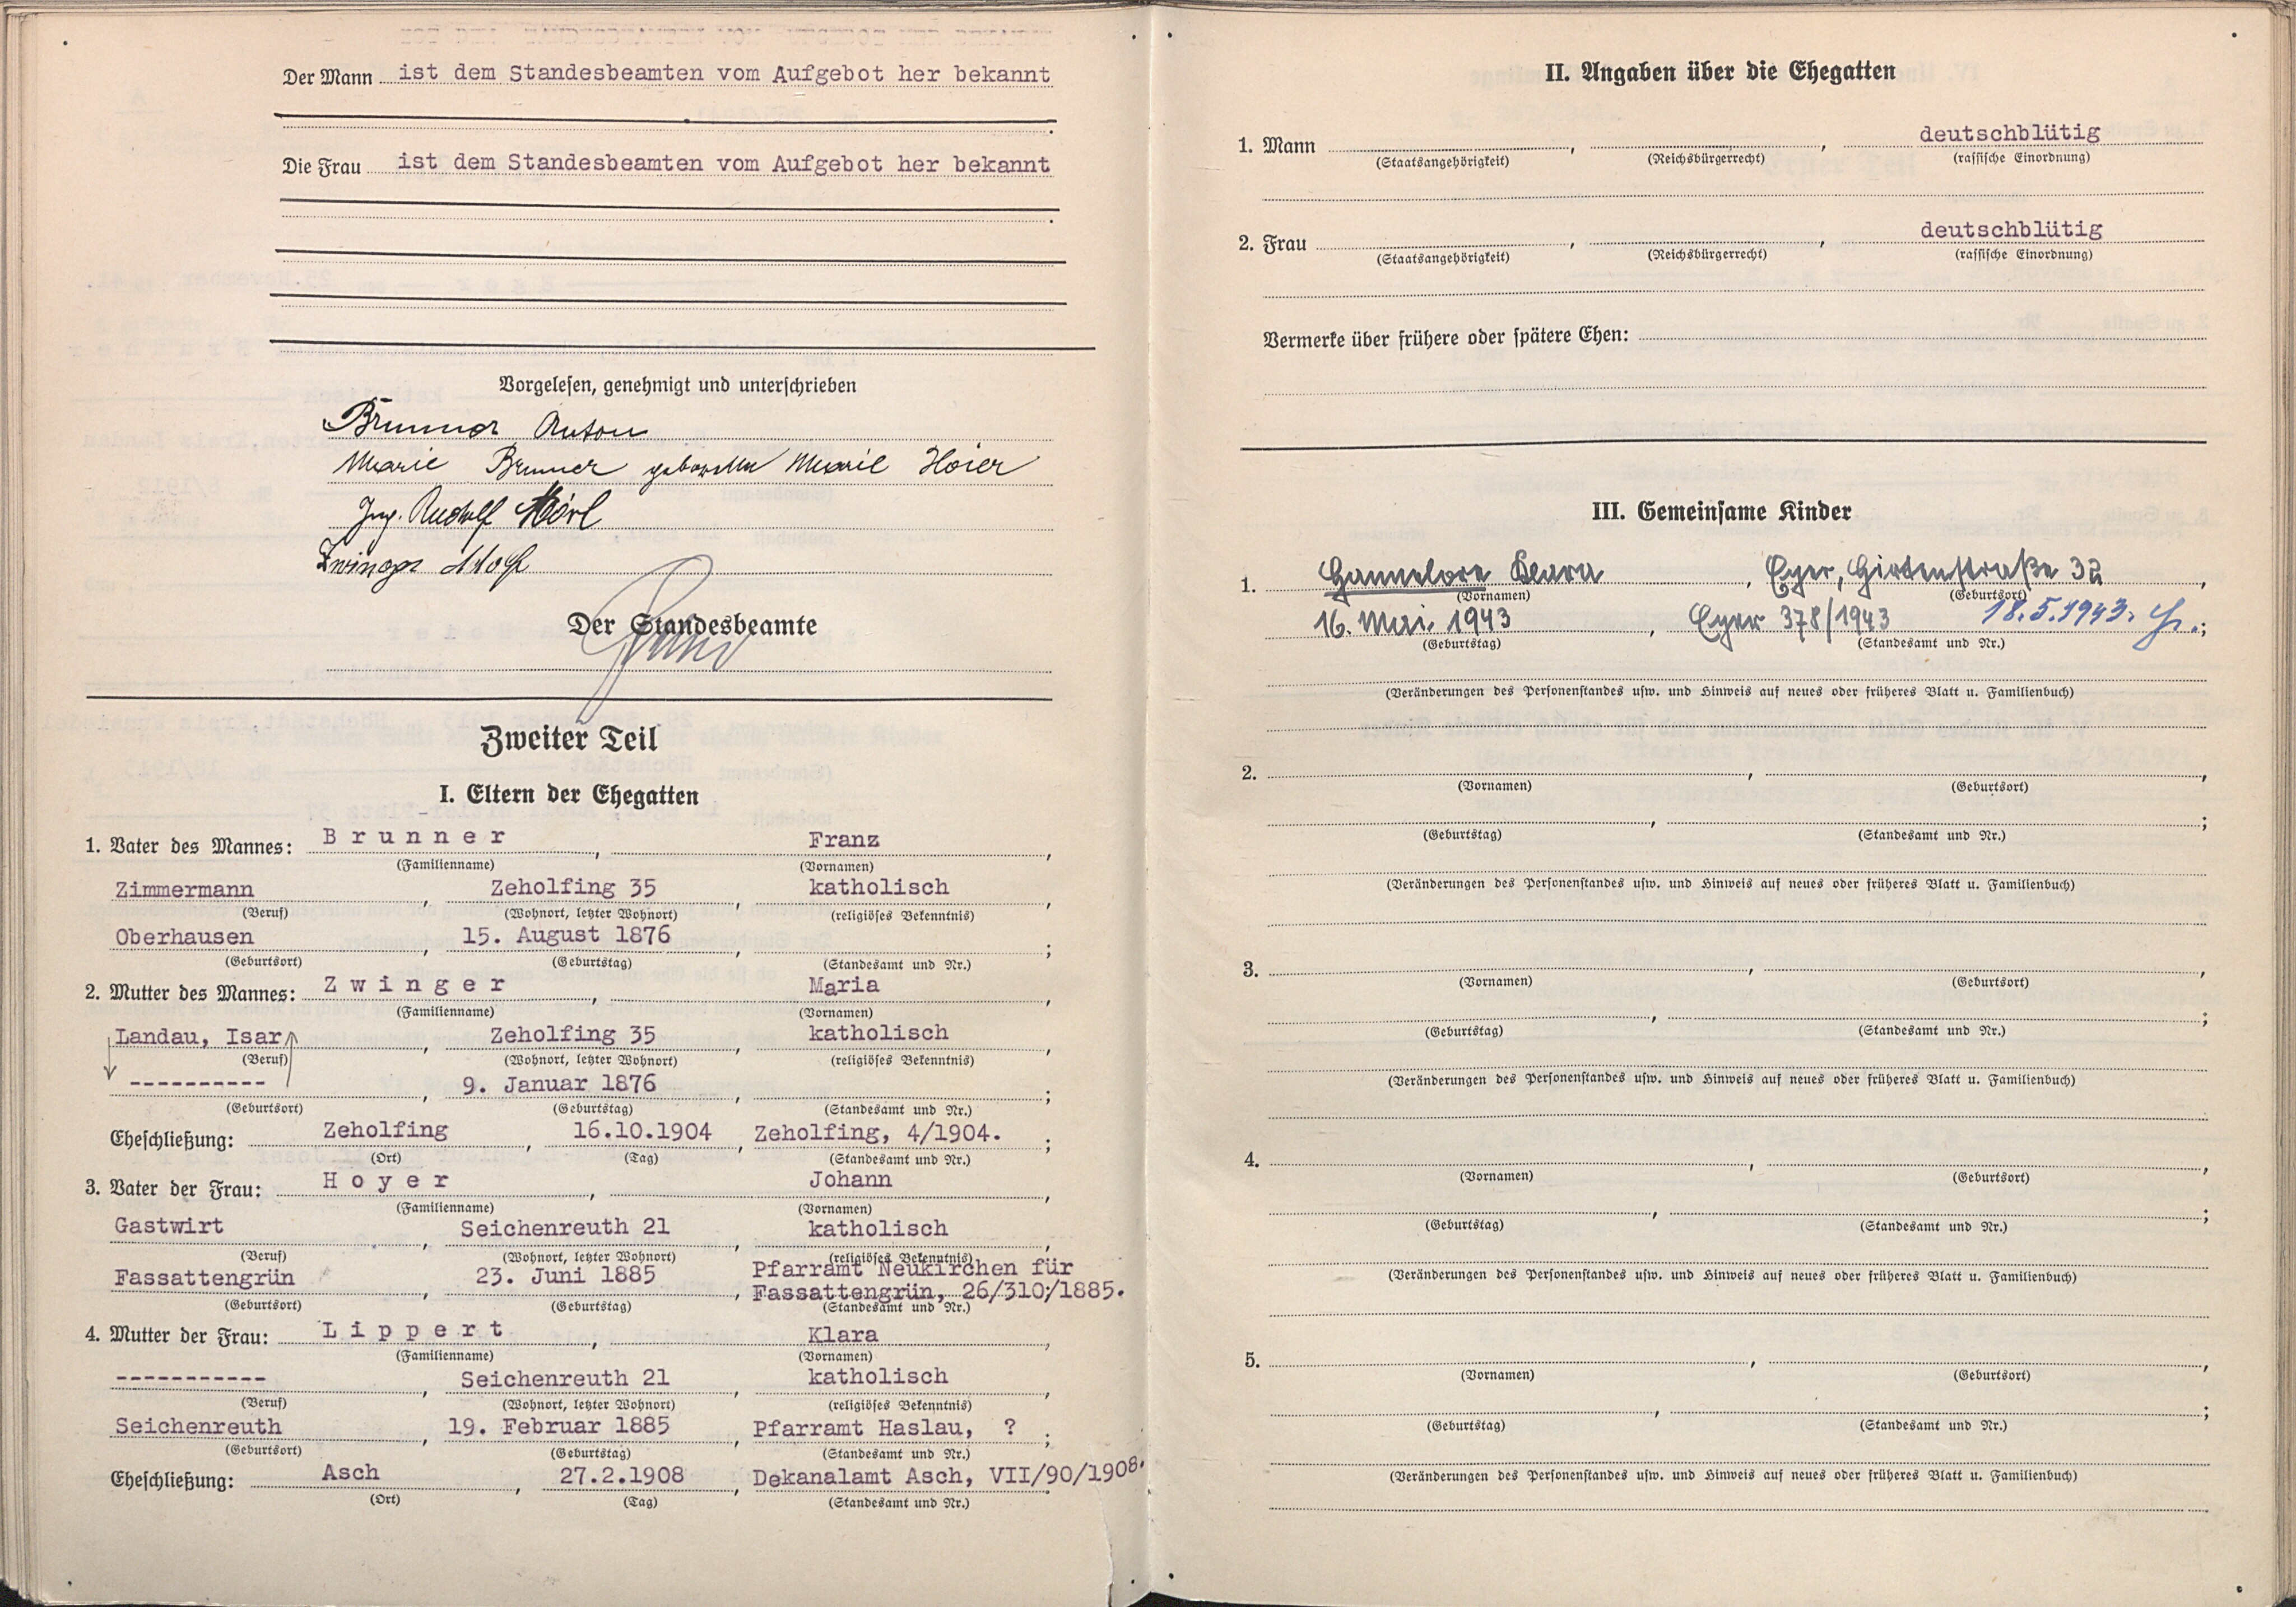 Der Mann ist dem Standesbeamten vom Aufgebot her bekannt
Die Frau ist dem Standesbeamten vom Aufgebot her bekannt
Vorgelesen, genehmigt und unterschrieben
Brunner Anton
Marie Brunner geborene Marie Hoier
Ing. Rudolf Mörl
Der Standesbeamte
Zweiter Teil
I. Eltern der Ehegatten
1. Vater des Mannes: Brunner, Franz,
(Familienname) (Vornamen)
Zimmermann, Zeholfing 35, katholisch,
(Beruf) (Wohnort, letzter Wohnort) (religiöses Bekenntnis)
Oberhausen, 15. August 1876, ;
(Geburtsort) (Geburtstag) (Standesamt und Nr.)
2. Mutter des Mannes: Zwinger, Maria,
(Familienname) (Vornamen)
Landau, Isar, Zeholfing 35, katholisch,
(Beruf) (Wohnort, letzter Wohnort) (religiöses Bekenntnis)
----------, 9. Januar 1876, ;
(Geburtsort) (Geburtstag) (Standesamt und Nr.)
Eheschließung: Zeholfing, 16.10.1904, Zeholfing, 4/1904. ;
(Ort) (Tag) (Standesamt und Nr.)
3. Vater der Frau: Hoyer, Johann,
(Familienname) (Vornamen)
Gastwirt, Seichenreuth 21, katholisch,
(Beruf) (Wohnort, letzter Wohnort) (religiöses Bekenntnis)
Pfarramt Neukirchen für
Fassattengrün, 23. Juni 1885, Fassattengrün, 26/310;/1885.
(Geburtsort) (Geburtstag) (Standesamt und Nr.)
4. Mutter der Frau: Lippert, Klara,
(Familienname) (Vornamen)
-----------, Seichenreuth 21, katholisch,
(Beruf) (Wohnort, letzter Wohnort) (religiöses Bekenntnis)
Seichenreuth, 19. Februar 1885, Pfarramt Haslau, ? ;
(Geburtsort) (Geburtstag) (Standesamt und Nr.)
Eheschließung: Asch, 27.2.1908, Dekanalamt Asch, VII/90/1908.
(Ort) (Tag) (Standesamt und Nr.)
II. Angaben über die Ehegatten
1. Mann , , deutschblütig
(Staatsangehörigkeit) (Reichsbürgerrecht) (rassische Einordnung)
2. Frau , , deutschblütig
(Staatsangehörigkeit) (Reichsbürgerrecht) (rassische Einordnung)
Vermerke über frühere oder spätere Ehen:
III. Gemeinsame Kinder
1. Hannelore Klara, Eger, Hirtenstraße 32,
(Vornamen) (Geburtsort)
16. Mai 1943, Eger 378/1943 18.5.1943. ;
(Geburtstag) (Standesamt und Nr.)
(Veränderungen des Personenstandes usw. und Hinweis auf neues oder früheres Blatt u. Familienbuch)
2. , ,
(Vornamen) (Geburtsort)
, ;
(Geburtstag) (Standesamt und Nr.)
(Veränderungen des Personenstandes usw. und Hinweis auf neues oder früheres Blatt u. Familienbuch)
3. , ,
(Vornamen) (Geburtsort)
, ;
(Geburtstag) (Standesamt und Nr.)
(Veränderungen des Personenstandes usw. und Hinweis auf neues oder früheres Blatt u. Familienbuch)
4. , ,
(Vornamen) (Geburtsort)
, ;
(Geburtstag) (Standesamt und Nr.)
(Veränderungen des Personenstandes usw. und Hinweis auf neues oder früheres Blatt u. Familienbuch)
5. , ,
(Vornamen) (Geburtsort)
, ;
(Geburtstag) (Standesamt und Nr.)
(Veränderungen des Personenstandes usw. und Hinweis auf neues oder früheres Blatt u. Familienbuch)